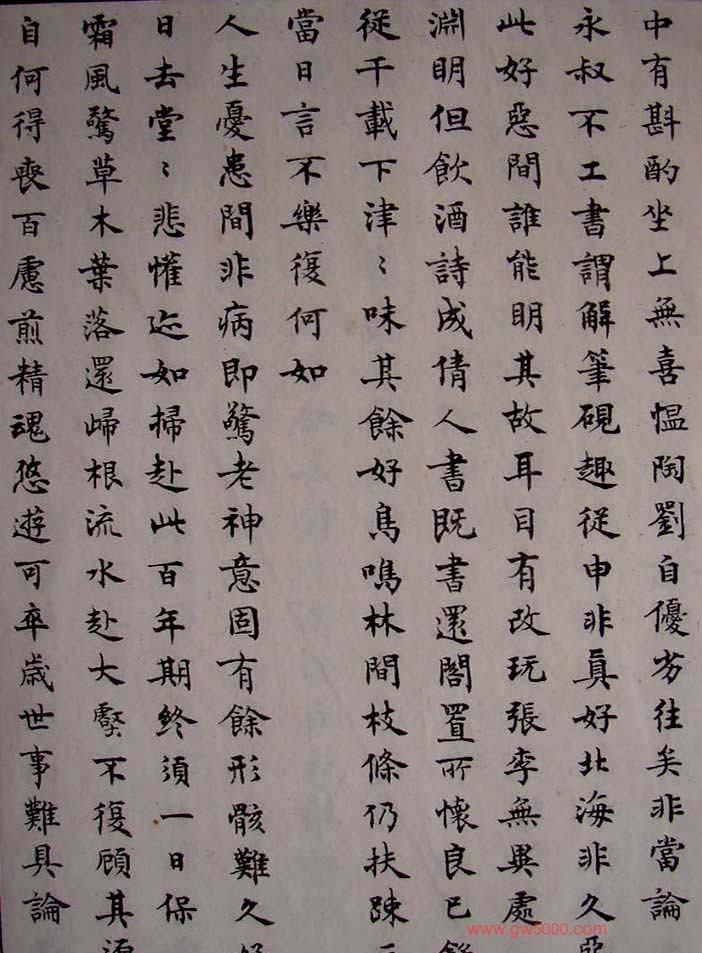 中有斟酌坐上無喜愠陶劉自優劣往矣非當論
永叔不工書謂解筆硯趣從申非真好北海非久
此好惡間誰能明其故耳目有改玩張李無異處
淵明但飲酒詩成倩人書既書還閣置所懷良已
從千載下津〻味其餘好鳥鳴林間枝條仍扶踈
當日言不樂復何如
人生憂患間非病即驚老神意固有餘形骸難久
日去堂〻悲懽迹如掃赴此百年期終須一日保
霜風驚草木葉落還歸根流水赴大壑不復顧其
自何得喪百慮煎精魂悠遊可卒歲世事難具論
www.gw5000.com